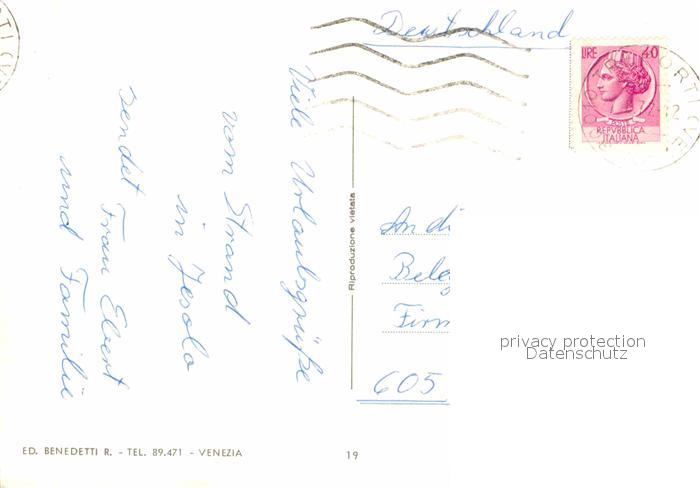 Deutschland
LIRE 40
POSTE
REPVBBLICA
ITALIANA
Viele Urlaubsgrüße
vom Strand
in Jesolo
sendet Frau Ebert
und Familie
Riproduzione vietata
An di
Bele
Firm
605
privacy protection
Datenschutz
ED. BENEDETTI R. - TEL. 89.471 - VENEZIA
19